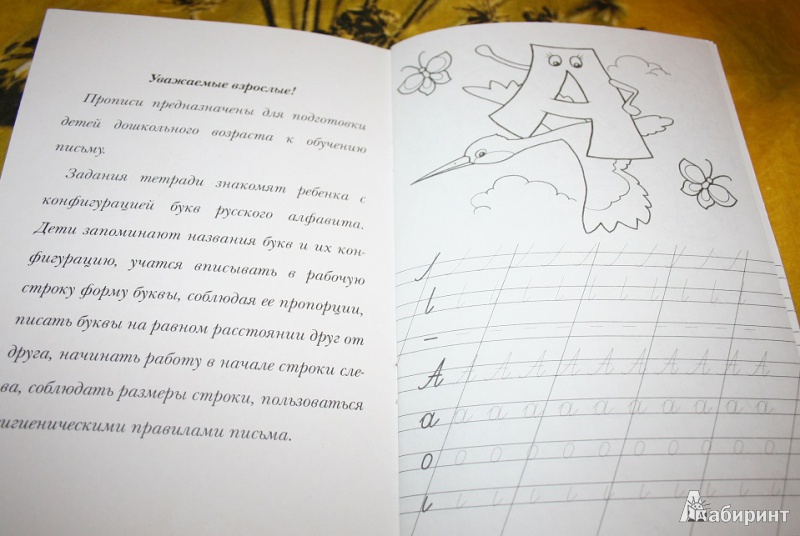 Уважаемые взрослые!
Прописи предназначены для подготовки
детей дошкольного возраста к обучению
письму.
Задания тетради знакомят ребенка с
конфигурацией букв русского алфавита.
Дети запоминают названия букв и их кон-
фигурацию, учатся вписывать в рабочую
строку форму буквы, соблюдая ее пропорции,
писать буквы на равном расстоянии друг от
друга, начинать работу в начале строки сле-
ва, соблюдать размеры строки, пользоваться
игиеническими правилами письма.
А
А А А А А А А А А А
а а а а а а а а а а а
о о о о о о о о о о о
Лабиринт